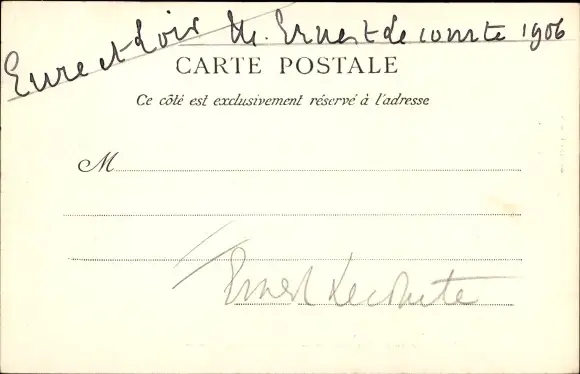 Eure et Loir M. Ernest Lecomte 1906
CARTE POSTALE
Ce côté est exclusivement réservé à l'adresse
M
Ernest Lecomte